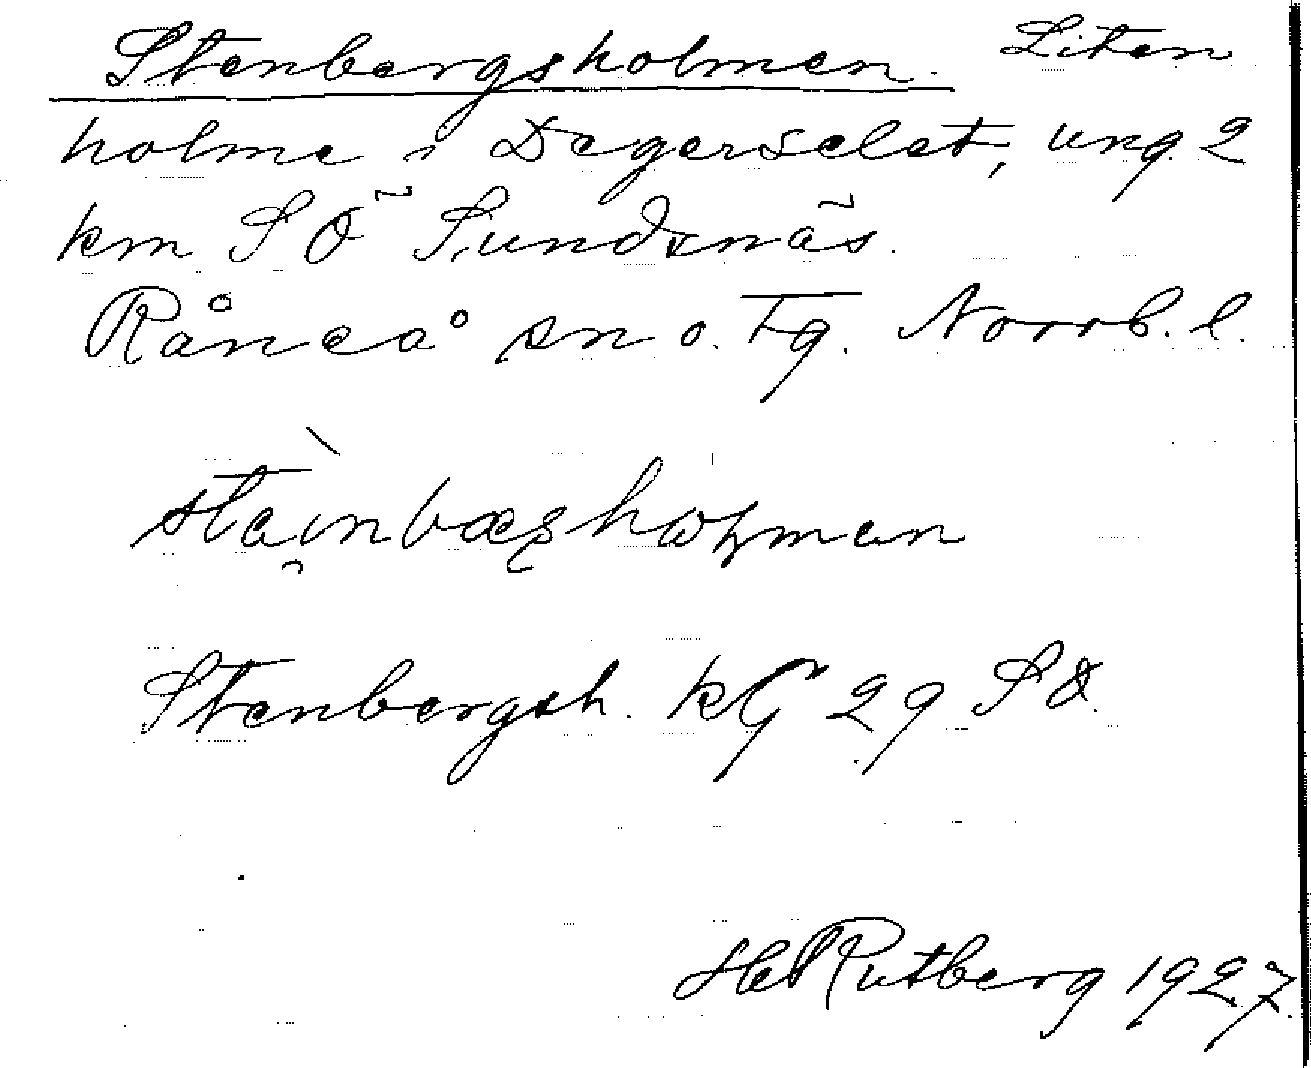 Stenbergsholmen. Liten
holme i Degerselet, ung. 2
km SÖ Sundsnäs.
Råneå sn o. tg. Norrb. l.
Stenbergsh. kG 29 SÖ.
H Rutberg 1927.